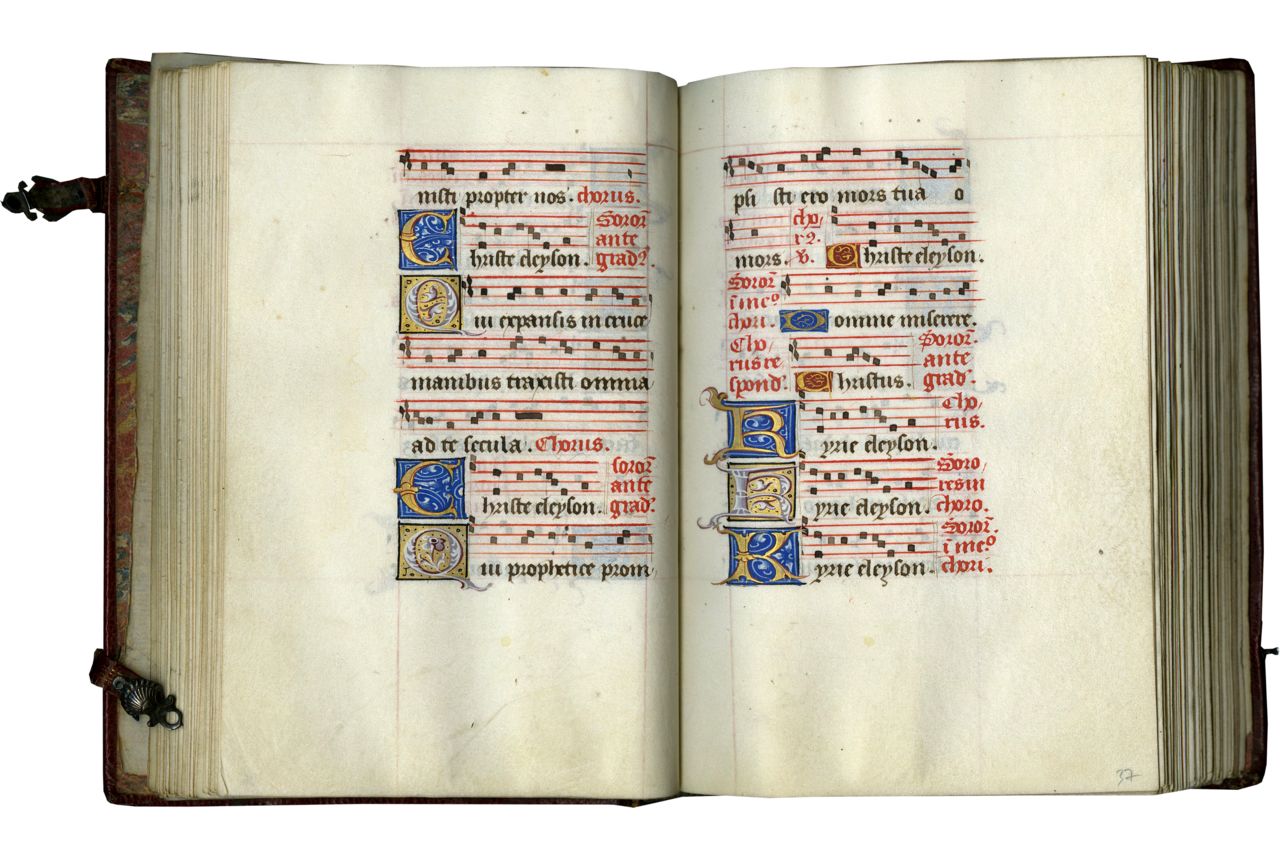 nisti propter nos. chorus.
Christe eleyson. Soror̄
ante
grad⁹.
Qui expansis in cruce
manibus traxisti omnia
ad te secula. Chorus.
Christe eleyson. soror̄
ante
grad⁹.
Qui prophetice prom
psi sti ero mors tua o
mors. cho
rꝰ.
v̄. Christe eleyson.
Soror̄
ī meº
chori. Domine miserere.
Cho
rus re
spond⁹. Christus. Soror̄.
ante
grad⁹.
Kyrie eleyson. Cho
rus.
Kyrie eleyson. Soro
res in
choro.
Kyrie eleyson. Soror̄.
ī meº
chori.
37